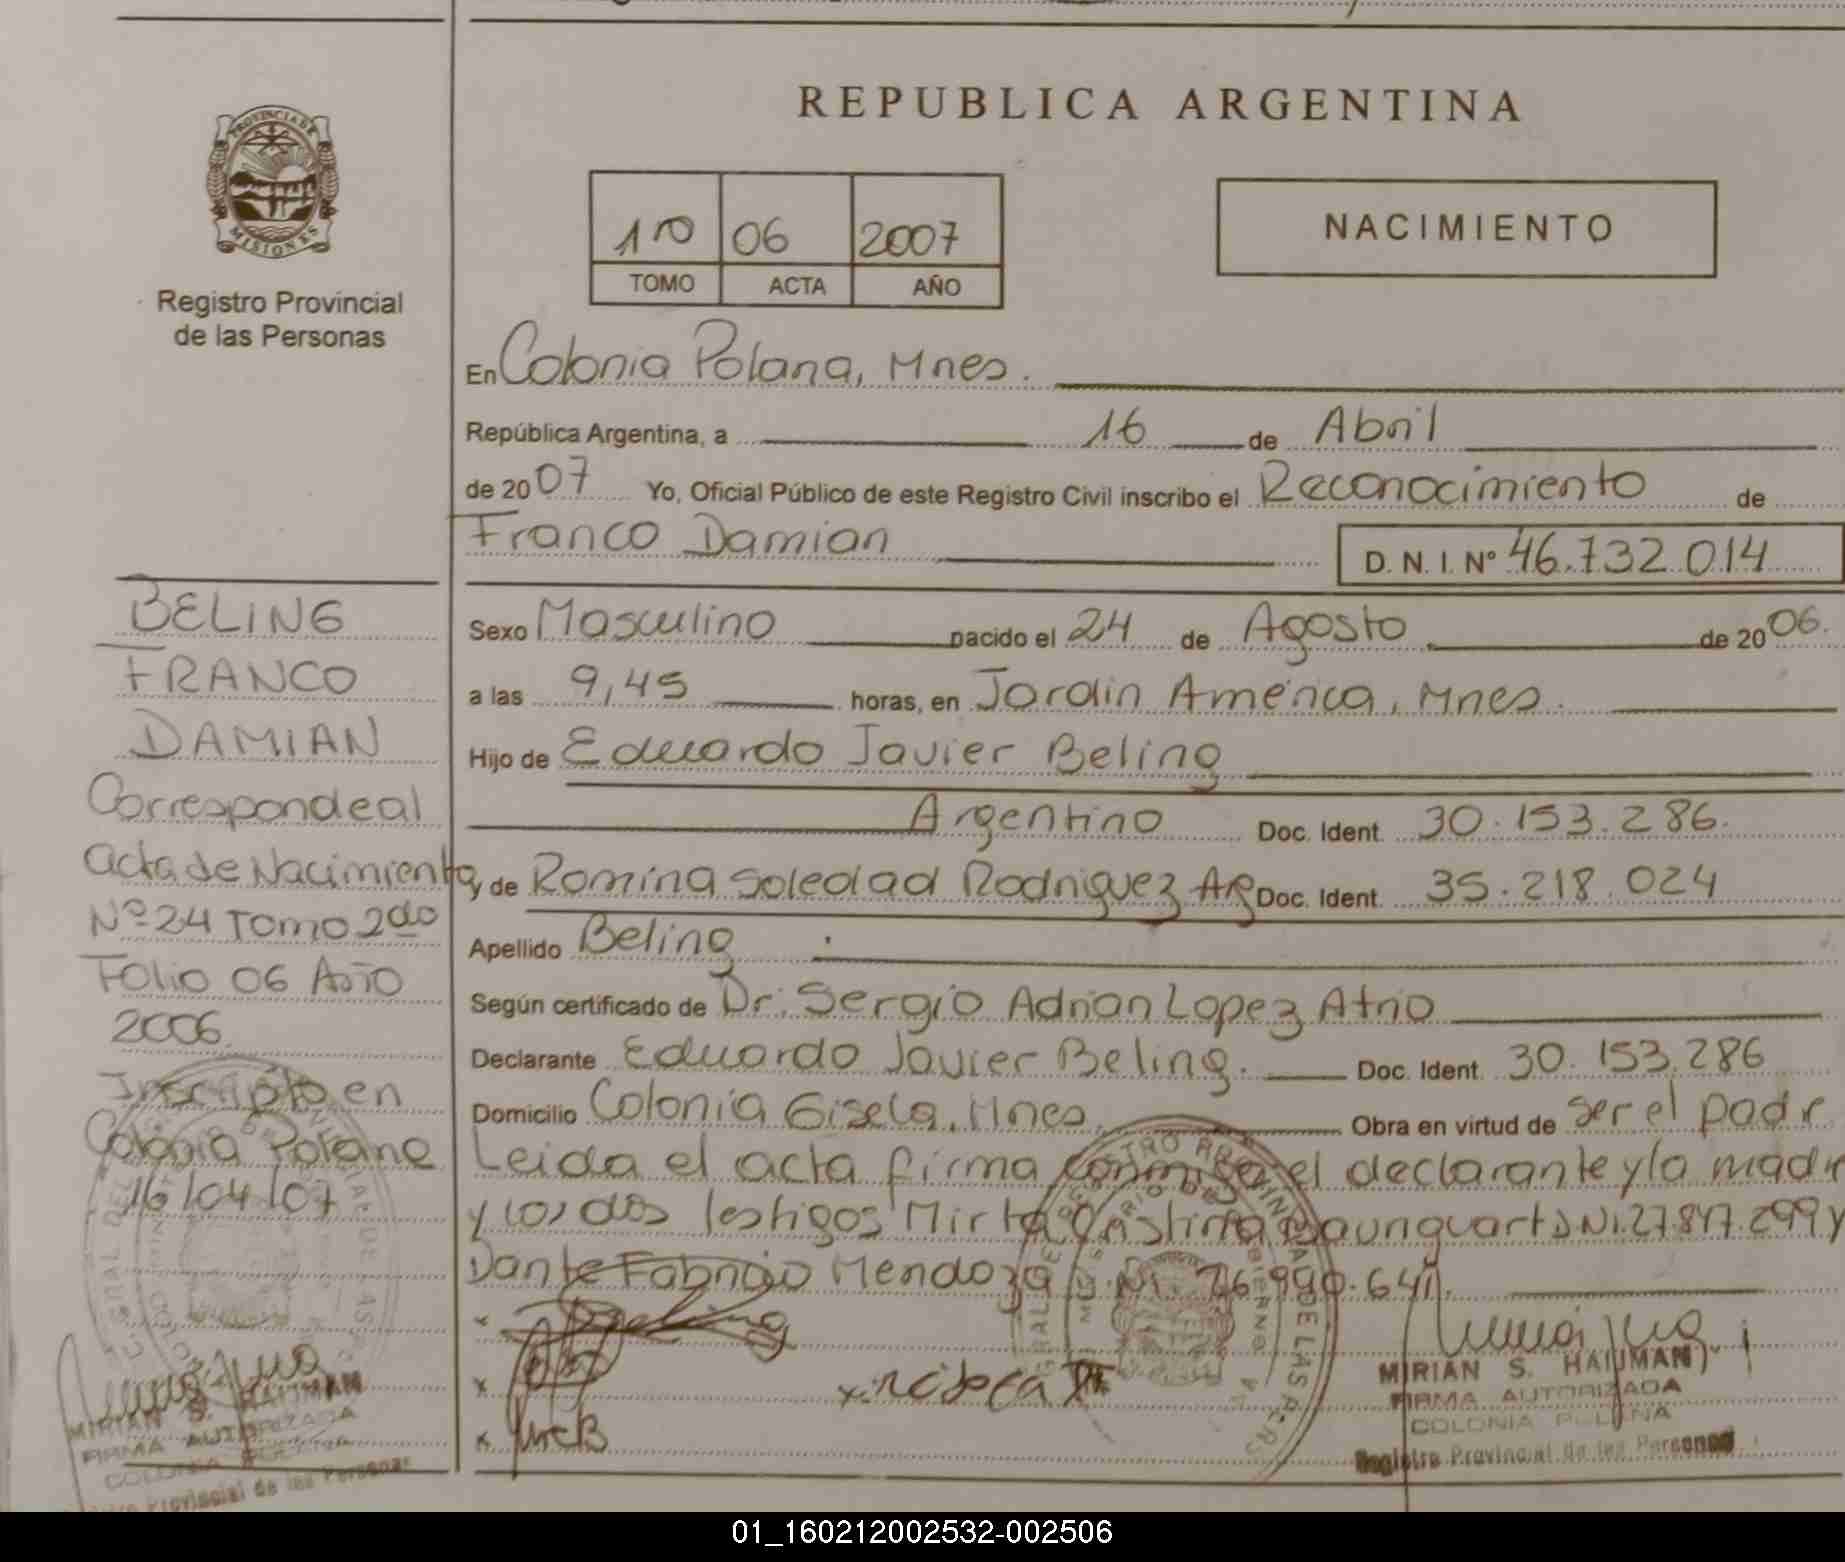 REPUBLICA ARGENTINA
PROVINCIA DE
MISIONES
Registro Provincial
de las Personas
1ro 06 2007
TOMO ACTA AÑO
NACIMIENTO
En Colonia Polana, Mnes.
República Argentina, a 16 de Abril
de 2007 Yo, Oficial Público de este Registro Civil inscribo el Reconocimiento de
Franco Damian D. N. I. Nº 46.732.014
Sexo Masculino nacido el 24 de Agosto de 2006.
a las 9,45 horas, en Jardin América, Mnes.
Hijo de Eduardo Javier Beling
Argentino Doc. Ident. 30.153.286.
y de Romina Soledad Rodriguez Doc. Ident. 35.218.024
Apellido Beling
Según certificado de Dr. Sergio Adrian Lopez Atrio
Declarante Eduardo Javier Beling. Doc. Ident. 30.153.286
Domicilio Colonia Gisela, Mnes. Obra en virtud de ser el padre
Leida el acta firma conmigo el declarante y la madre
y los dos testigos Mirta D.N.I. 27.817.299 y
Dante Fabricio Mendoza
BELING
FRANCO
DAMIAN
Corresponde al
acta de Nacimiento
Nº 24 Tomo 2do
Folio 06 Año
2006.
Inscripto en
Colonia Polana
16/04/07
MIRIAN S. HAIJMAN
FIRMA AUTORIZADA
COLONIA POLANA
Registro Provincial de las Personas
MIRIAN S. HAIJMAN
FIRMA AUTORIZADA
COLONIA POLANA
Registro Provincial de las Personas
01_160212002532-002506